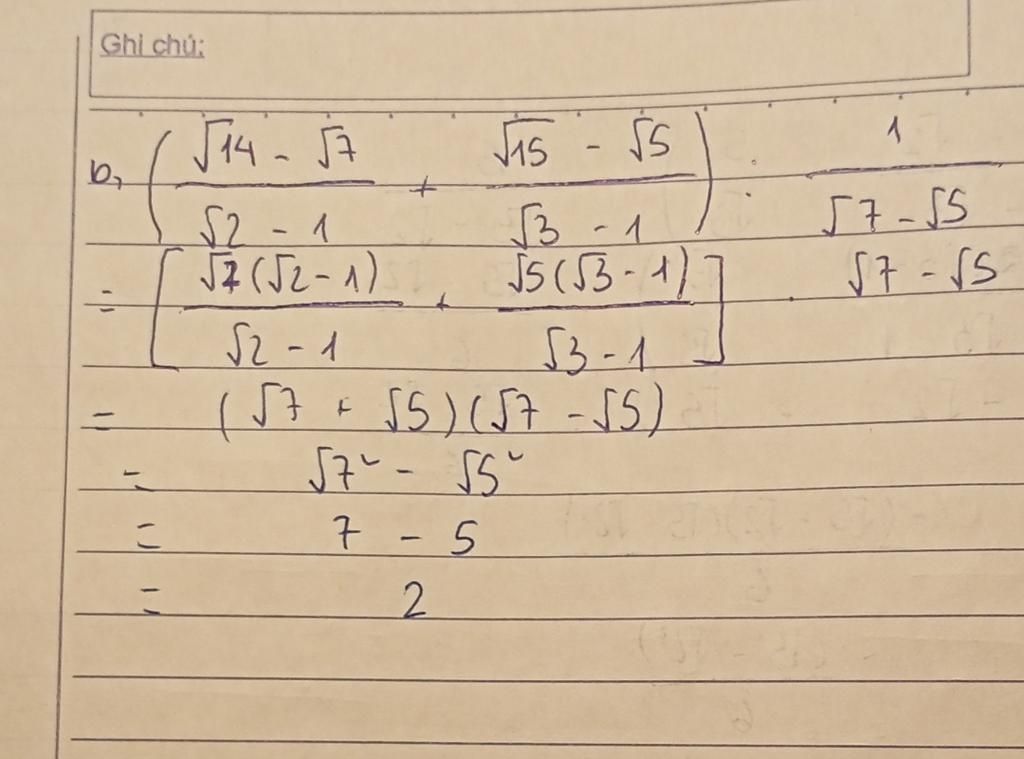 Ghi chú:
b, ( (√14 - √7)/(√2 - 1) + (√15 - √5)/(√3 - 1) ) : 1/(√7 - √5)
= [ √7(√2 - 1)/(√2 - 1) + √5(√3 - 1)/(√3 - 1) ] . √7 - √5
= (√7 + √5)(√7 - √5)
= √7² - √5²
= 7 - 5
= 2